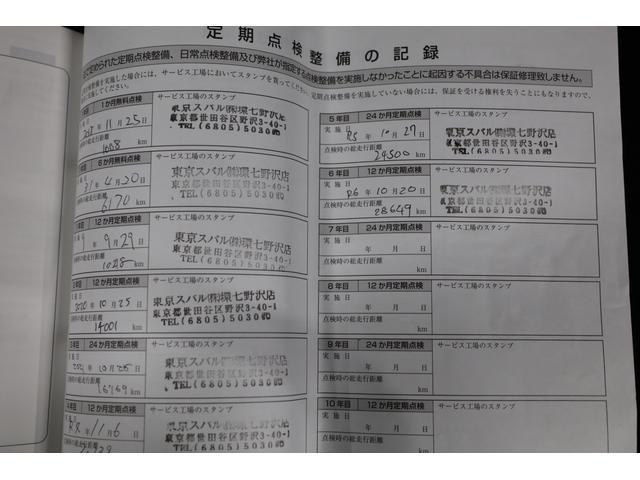 定期点検整備の記録
定められた定期点検整備、日常点検整備及び弊社が指定する点検整備を実施しなかったことに起因する不具合は保証修理致しません。
整備を実施した場合には、サービス工場においてスタンプを貰ってください。
定期点検整備を実施していない場合には、保証を受ける権利を失うことにもなりますので、
実施してください。
1か月無料点検
サービス工場のスタンプ
年 11月 25日
東京スバル㈱環七野沢店
東京都世田谷区野沢3-40-1
TEL(6805)5030㈹
km
6か月無料点検
サービス工場のスタンプ
31年 4月 20日
東京スバル㈱環七野沢店
東京都世田谷区野沢3-40-1
TEL(6805)5030㈹
6170 km
12か月定期点検
サービス工場のスタンプ
年 9月 29日
東京スバル㈱環七野沢店
東京都世田谷区野沢3-40-1
TEL(6805)5030㈹
km
2年目 12か月定期点検
サービス工場のスタンプ
2020年 10月 25日
東京スバル㈱環七野沢店
東京都世田谷区野沢3-40-1
TEL(6805)5030㈹
14001 km
3年目 24か月定期点検
サービス工場のスタンプ
年 10月 日
東京スバル㈱環七野沢店
東京都世田谷区野沢3-40-1
TEL(6805)5030㈹
km
12か月定期点検
サービス工場のスタンプ
年 11月 6日
東京スバル㈱環七野沢店
東京都世田谷区野沢3-40-1
TEL(6805)5030㈹
5年目 24か月定期点検
サービス工場のスタンプ
実施日
R5年 10月 27日
点検時の総走行距離
24500 km
東京スバル㈱環七野沢店
東京都世田谷区野沢3-40-1
TEL(6805)5030㈹
6年目 12か月定期点検
サービス工場のスタンプ
実施日
R6年 10月 20日
点検時の総走行距離
28649 km
東京スバル㈱環七野沢店
東京都世田谷区野沢3-40-1
TEL(6805)5030㈹
7年目 24か月定期点検
サービス工場のスタンプ
実施日
年 月 日
点検時の総走行距離
km
8年目 12か月定期点検
サービス工場のスタンプ
実施日
年 月 日
点検時の総走行距離
km
9年目 24か月定期点検
サービス工場のスタンプ
実施日
年 月 日
点検時の総走行距離
km
10年目 12か月定期点検
サービス工場のスタンプ
実施日
年 月 日
点検時の総走行距離
km